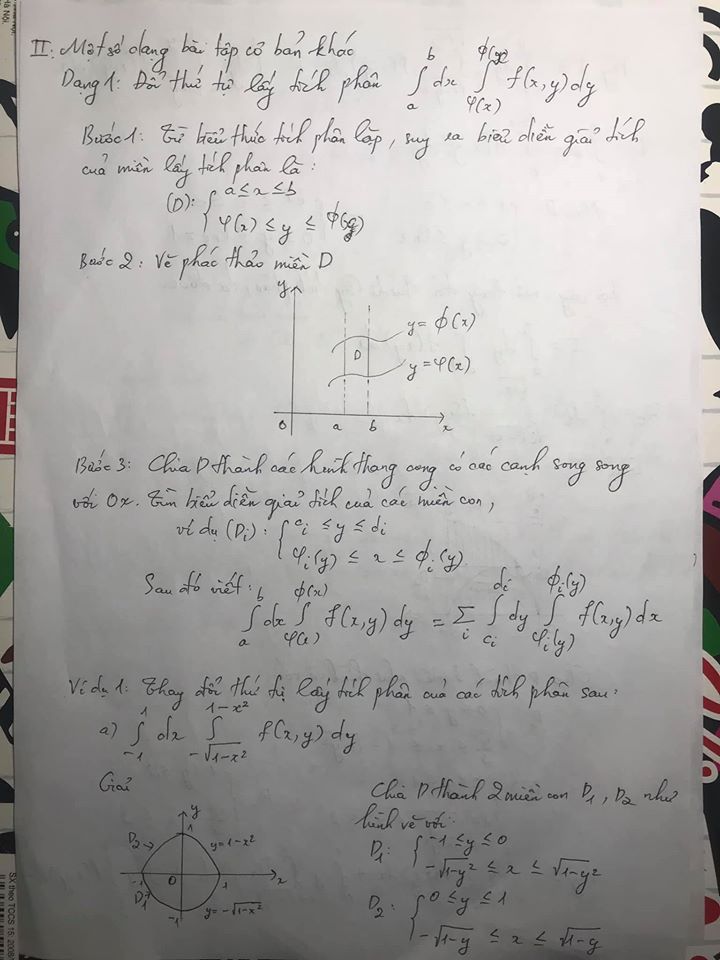 II: Một số dạng bài tập cơ bản khác
Dạng 1: Đổi thứ tự lấy tích phân ∫_a^b dx ∫_{φ(x)}^{ϕ(x)} f(x,y)dy
Bước 1: Từ biểu thức tích phân lặp, suy ra biểu diễn giải tích
của miền lấy tích phân là:
(D): { a ≤ x ≤ b
φ(x) ≤ y ≤ ϕ(x)
Bước 2: Vẽ phác thảo miền D
y
y = ϕ(x)
D
y = φ(x)
0 a b x
Bước 3: Chia D thành các hình thang cong có các cạnh song song
với Ox. Tìm biểu diễn giải tích của các miền con,
ví dụ (Di): { ci ≤ y ≤ di
φi(y) ≤ x ≤ ϕi(y)
Sau đó viết:
∫_a^b dx ∫_{φ(x)}^{ϕ(x)} f(x,y)dy = Σ_i ∫_{ci}^{di} dy ∫_{φi(y)}^{ϕi(y)} f(x,y)dx
Ví dụ 1: Thay đổi thứ tự lấy tích phân của các tích phân sau:
a) ∫_{-1}^{1} dx ∫_{-√(1-x²)}^{1-x²} f(x,y)dy
Giải
y
1
D2
y = 1-x²
-1 0 1 x
D1
-1
y = -√(1-x²)
Chia D thành 2 miền con D1, D2 như
hình vẽ với:
D1: { -1 ≤ y ≤ 0
-√(1-y²) ≤ x ≤ √(1-y²)
D2: { 0 ≤ y ≤ 1
-√(1-y) ≤ x ≤ √(1-y)